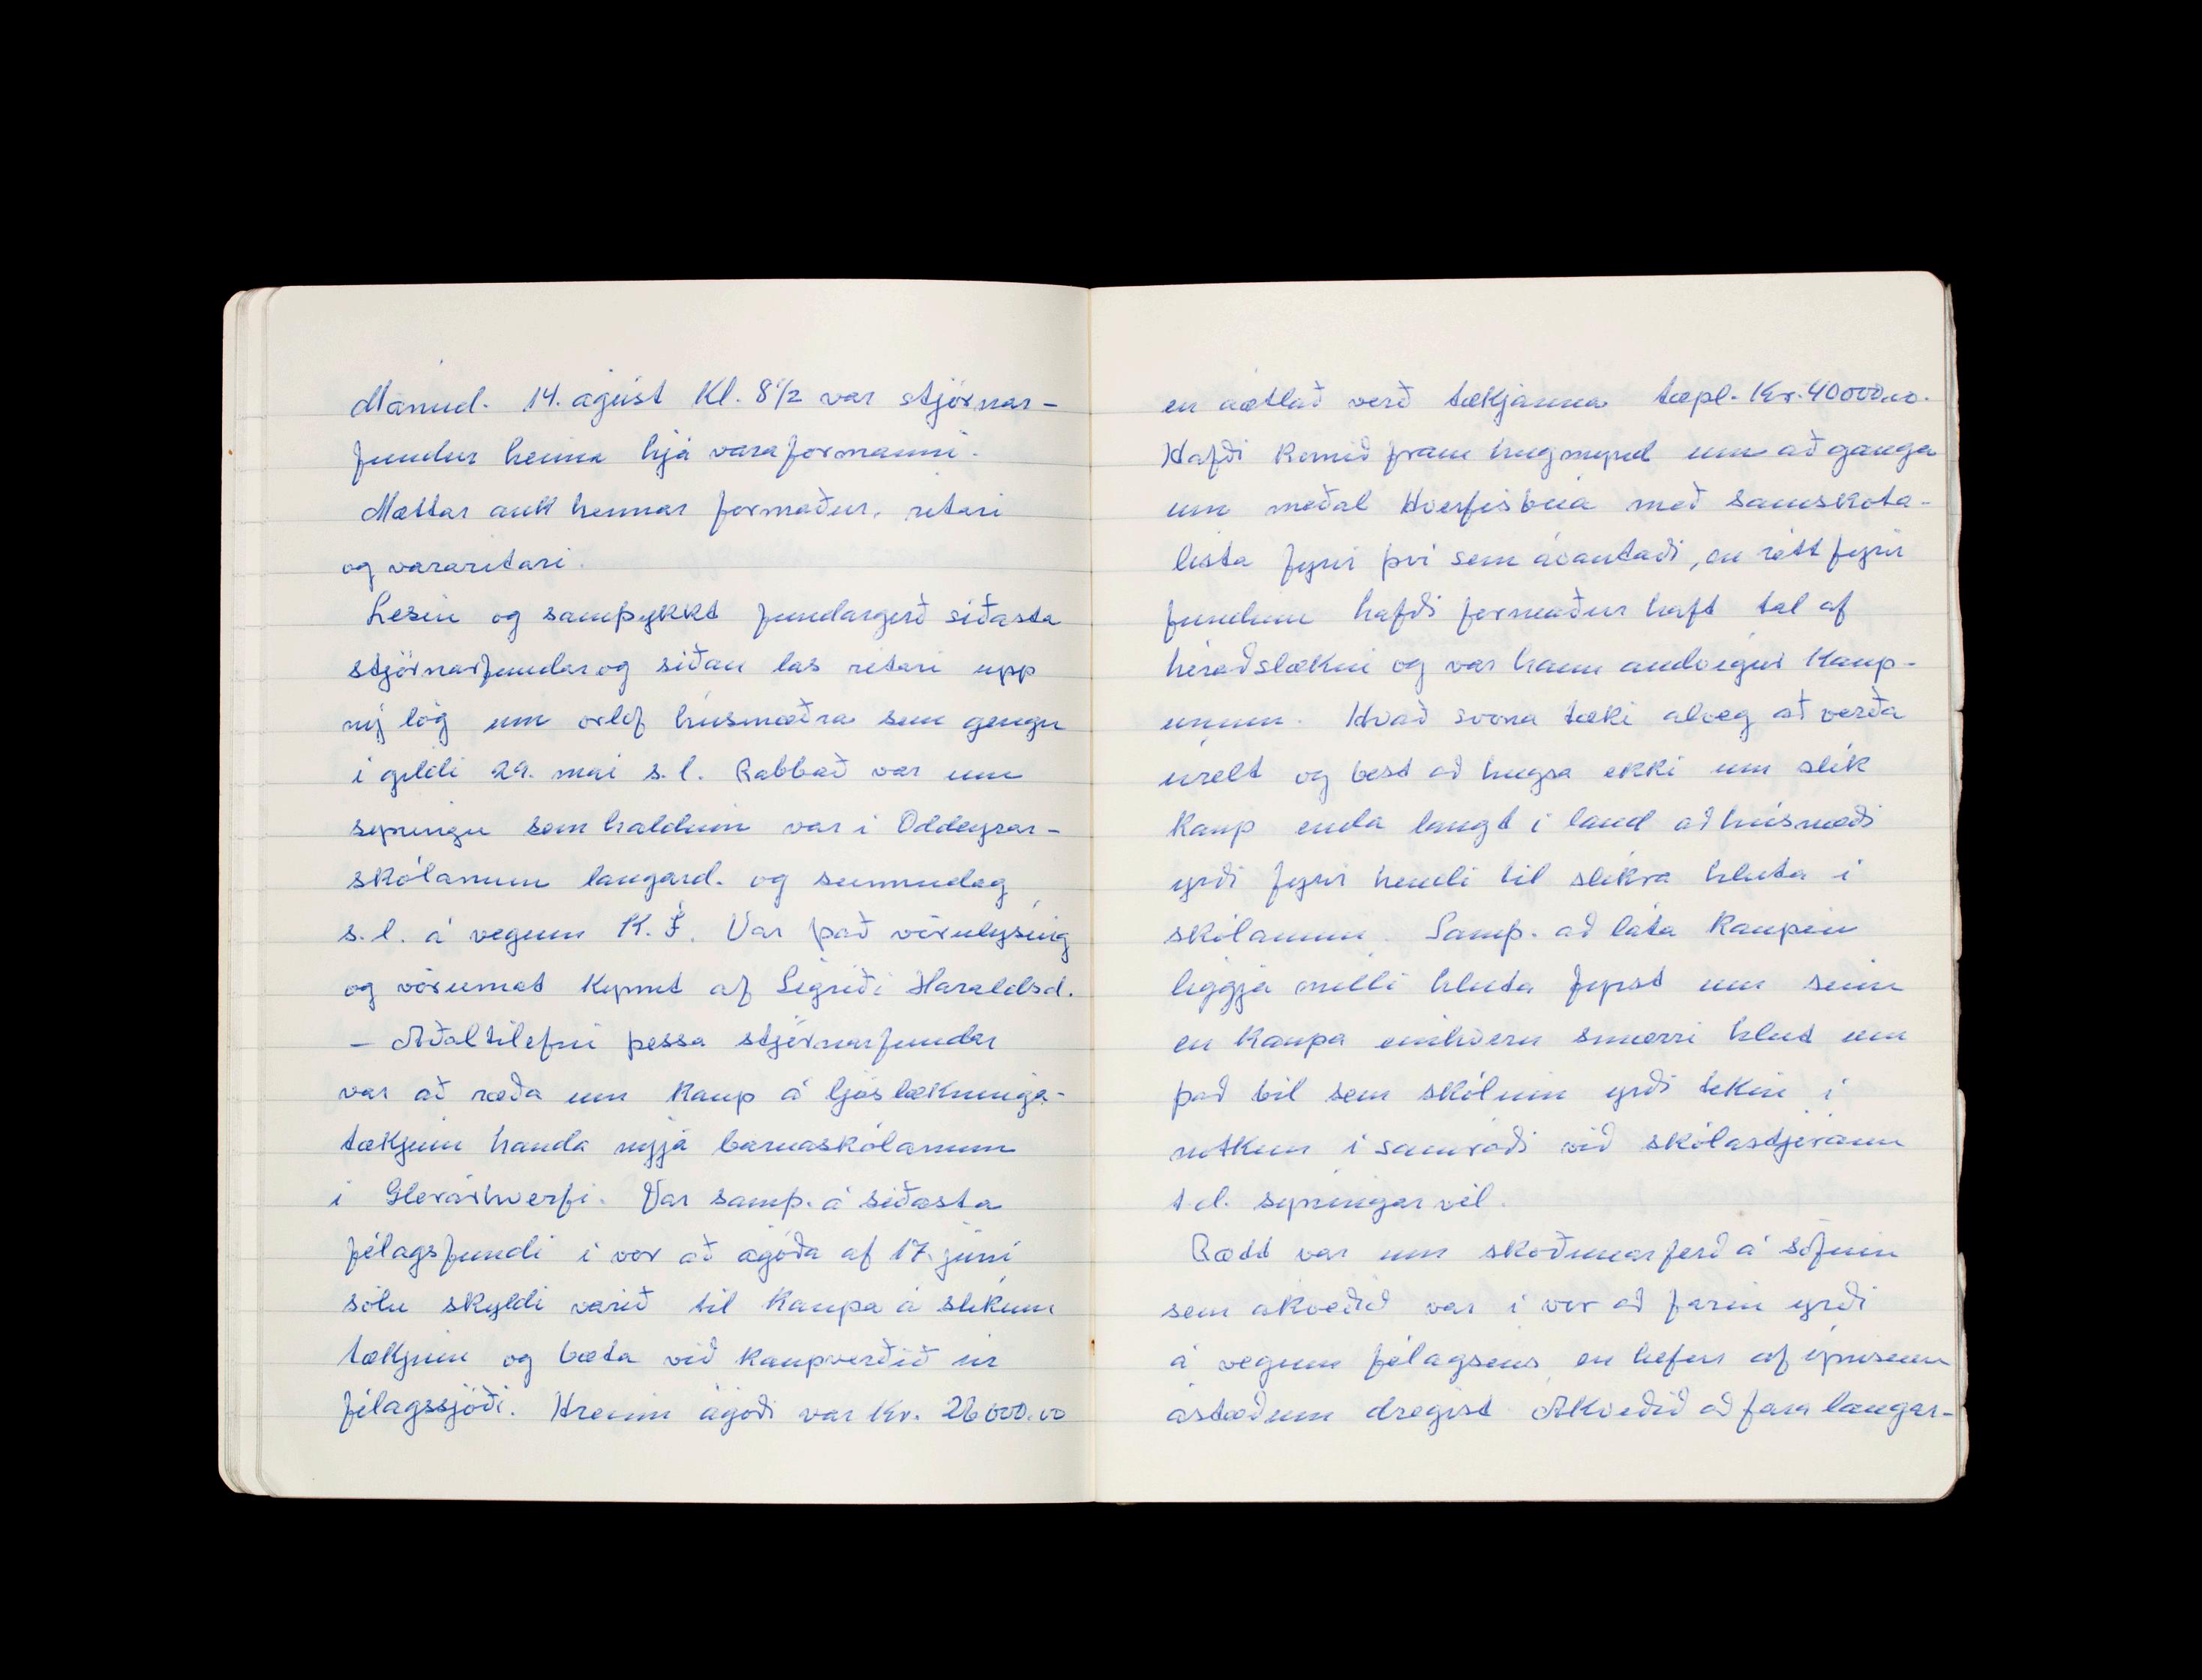 Mánud. 14. ágúst Kl. 8 1/2 var stjórnar-
fundur heima hjá varaformanni.
Mættar auk hennar formaður, ritari
og vararitari.
Lesin og samþykkt fundargerð síðasta
stjórnarfundar og síðan las ritari upp
ný lög um orlof húsmæðra sem gengu
í gildi 29. maí s.l. Rabbað var um
sýningu sem haldin var í Oddeyrar-
skólanum laugard. og sunnudag
s.l. á vegum K.Í. Var það vörulýsing
og vörumat kynnt af Sigríði Haraldsd.
- Aðaltilefni þessa stjórnarfundar
var að ræða um kaup á ljóslækninga-
tækjum handa nýja barnaskólanum
í Glerárhverfi. Var samþ. á síðasta
félagsfundi í vor að ágóða af 17. júní
sölu skyldi varið til kaupa á slíkum
tækjum og bæta við kaupverðið úr
félagssjóði. Hreinn ágóði var Kr. 26000.00
en áætlað verð tækjanna tæpl. Kr. 40000.00.
Hafði komið fram hugmynd um að ganga
um meðal Hverfisbúa með samskota-
lista fyrir því sem ávantaði, en rétt fyrir
fundinn hafði formaður haft tal af
héraðslækni og var hann andvígur kaup-
unum. Kvað svona tæki alveg að verða
úrelt og best að hugsa ekki um slík
kaup enda langt í land að húsnæði
yrði fyrir hendi til slíkra hluta í
skólanum. Samþ. að láta kaupin
liggja milli hluta fyrst um sinn
en kaupa einhvern smærri hlut um
það bil sem skólinn yrði tekin í
notkun í samráði við skólastjórann
t.d. sýningarvél.
Rædd var um skoðunarferð á söfnin
sem ákveðið var í vor að farin yrði
á vegum félagsins en hefur af ýmsum
ástæðum dregist. Ákveðið að fara laugar-